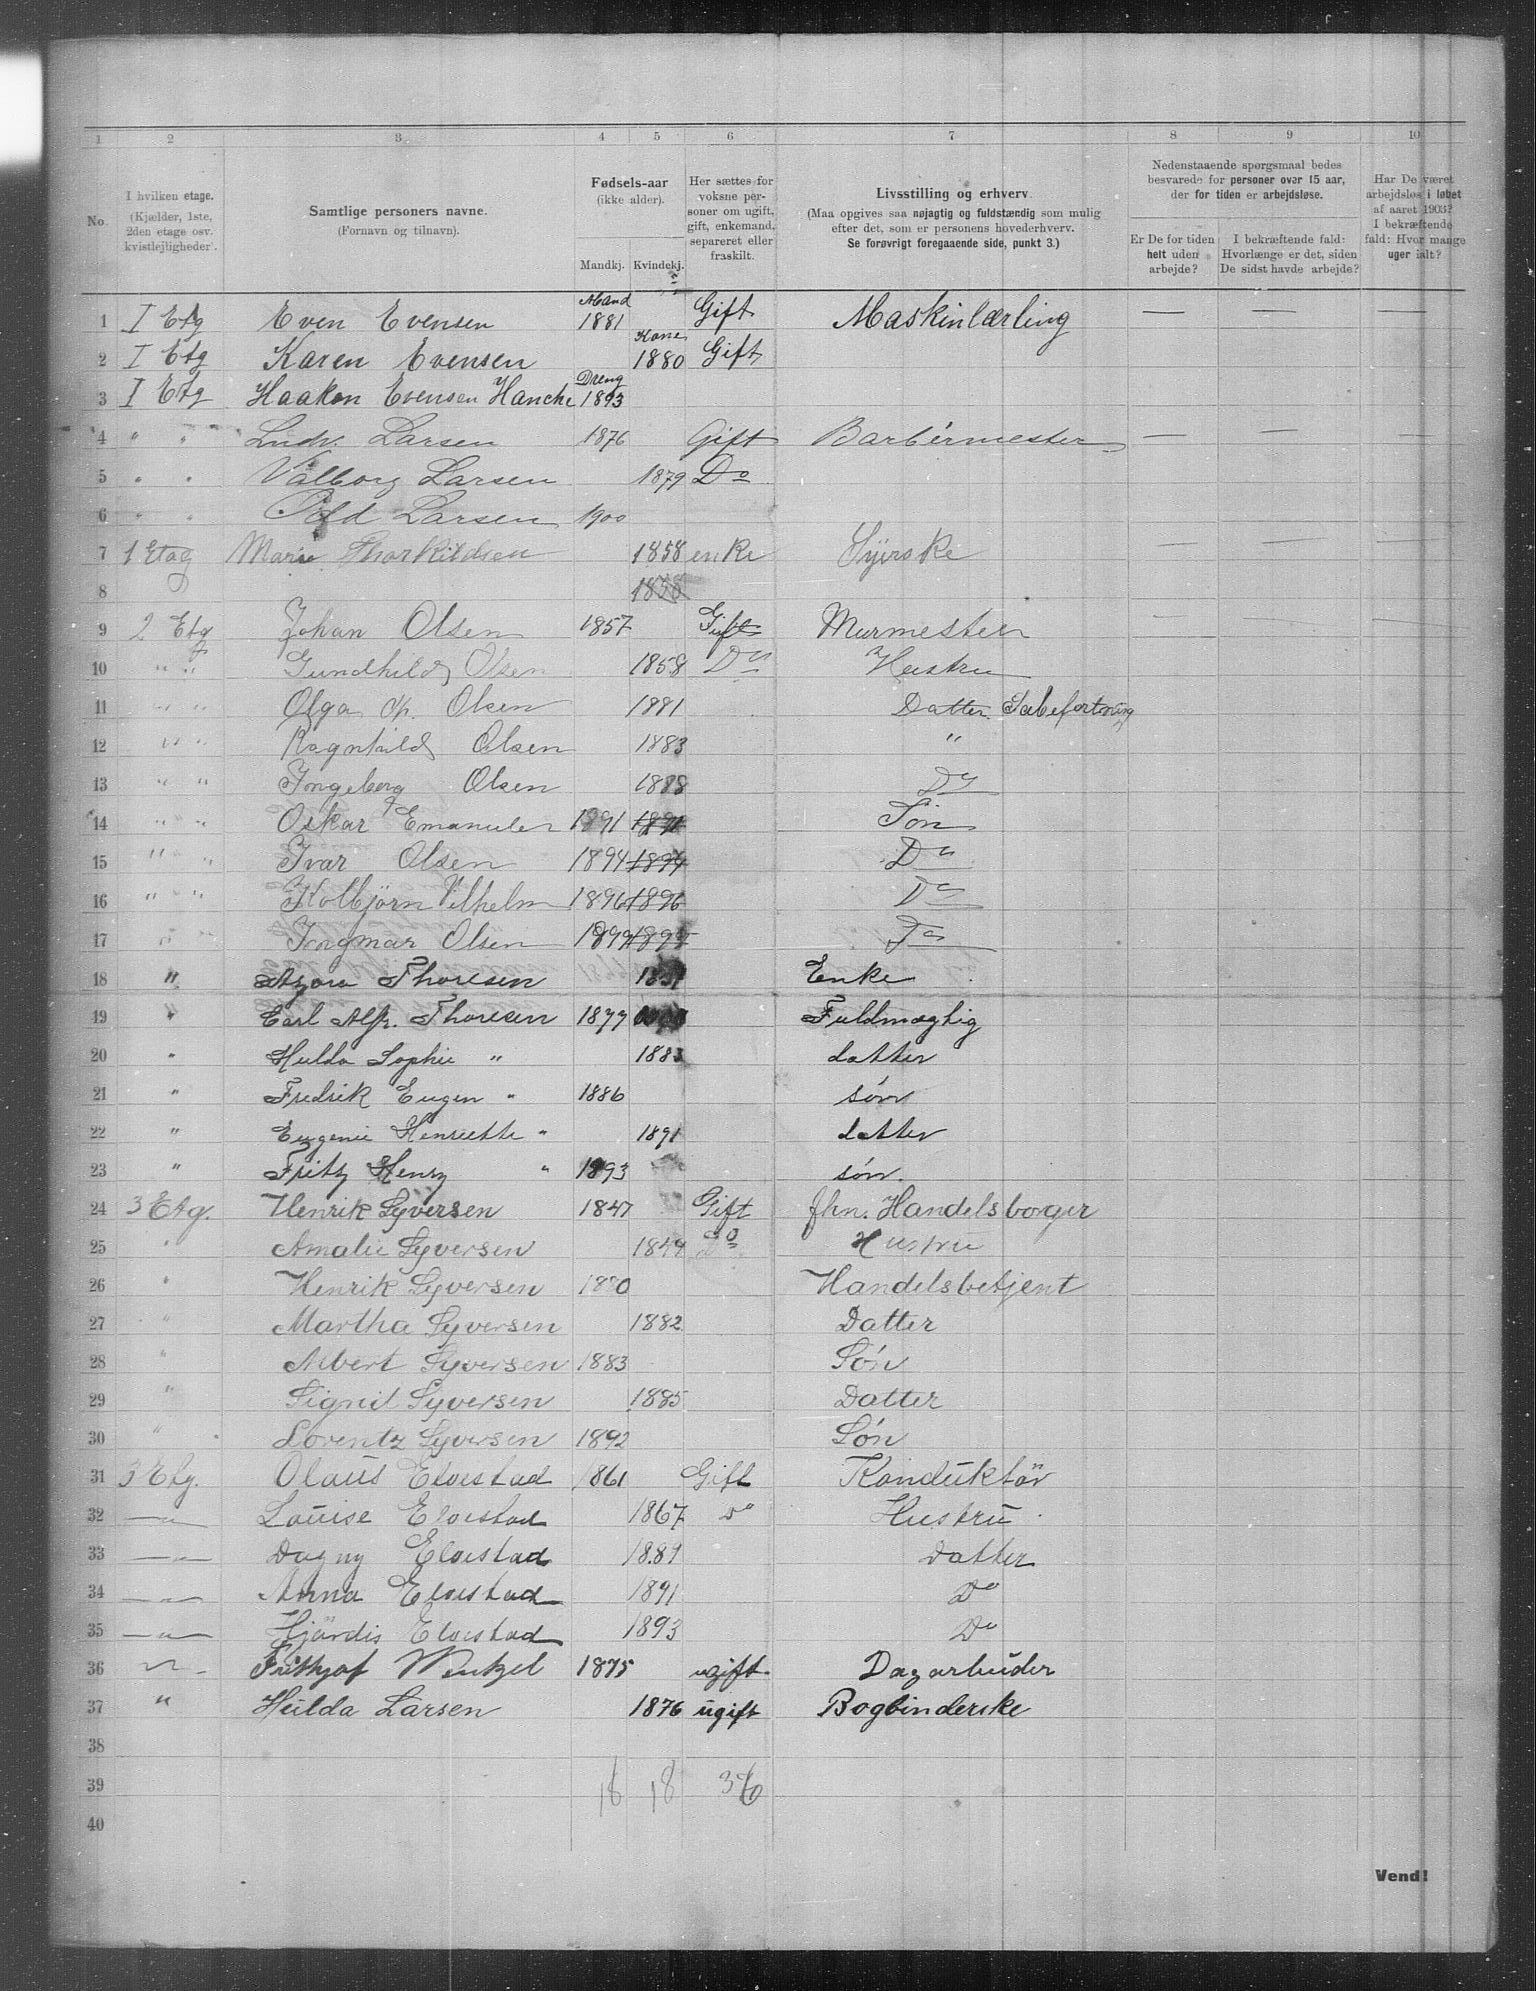 1 2 3 4 5 6 7 8 9 10
No.
I hvilken etage.
(Kjælder, 1ste,
2den etage osv.
kvistlejligheder).
Samtlige personers navne.
(Fornavn og tilnavn).
Fødsels-aar
(ikke alder).
Mandkj. Kvindekj.
Her sættes for
voksne per-
soner om ugift,
gift, enkemand,
separeret eller
fraskilt.
Livsstilling og erhverv.
(Maa opgives saa nøjagtig og fuldstændig som mulig
efter det, som er personens hovederhverv.
Se forøvrigt foregaaende side, punkt 3.)
Nedenstaaende spørgsmaal bedes
besvarede for personer over 15 aar,
der for tiden er arbejdsløse.
Er De for tiden
helt uden
arbejde?
I bekræftende fald:
Hvorlænge er det, siden
De sidst havde arbejde?
Har De været
arbejdsløs i løbet
af aaret 1903?
I bekræftende
fald: Hvor mange
uger ialt?
1 I Etg Even Evensen Mand 1881 Gift Maskinlærling — — —
2 I Etg Karen Evensen Kone 1880 Gift
3 I Etg Haakon Evensen Hanche Dreng 1893
4 " " Ludv. Larsen 1876 Gift Barbérmester — — —
5 " " Valborg Larsen 1879 Do
6 " " Larsen 1900
7 1 Etag Marie Thorkildsen 1858 enke Syerske — — —
8 1858
9 2 Etg Johan Olsen 1857 Gift Murmester — — —
10 " " Gundhild Olsen 1858 Do Hustru
11 " " Olga Olsen 1881 Datter
12 " " Ragnhild Olsen 1883 "
13 " " Ingeborg Olsen 1888 Do
14 " " Oskar Emanuel 1891 1891 Søn
15 " " Ivar Olsen 1894 1894 Do
16 " " Kolbjörn Vilhelm 1896 1896 Do
17 " " Ingmar Olsen 1899 1899 Do
18 " Thoresen Enke
19 " Carl Alfr. Thoresen 1877 Fuldmægtig
20 " Hulda Sophie " 1883 datter
21 " Fredrik Eugen " 1886 søn
22 " Eugenie Henriette " 1891 datter
23 " Fritz Henry " 1893 søn.
24 3 Etg. Henrik Syversen 1847 Gift fhn. Handelsborger
25 " Amalie Syversen 1844 Do Hustru
26 " Henrik Syversen 1880 Handelsbetjent
27 " Martha Syversen 1882 Datter
28 " Albert Syversen 1883 Søn
29 " Sigrid Syversen 1885 Datter
30 " Lorentz Syversen 1892 Søn
31 3 Etg. Olaus Elvestad 1861 Gift Konduktör
32 —"— Louise Elvestad 1867 Do Hustru
33 —"— Dagny Elvestad 1889 Datter
34 —"— Anna Elvestad 1891 Do
35 —"— Hjördis Elvestad 1893 Do
36 —"— Frithjof Wentzel 1875 ugift Dagarbeider
37 " Hulda Larsen 1876 ugift Bogbinderske
38
39 18 18 36
40
Vend!